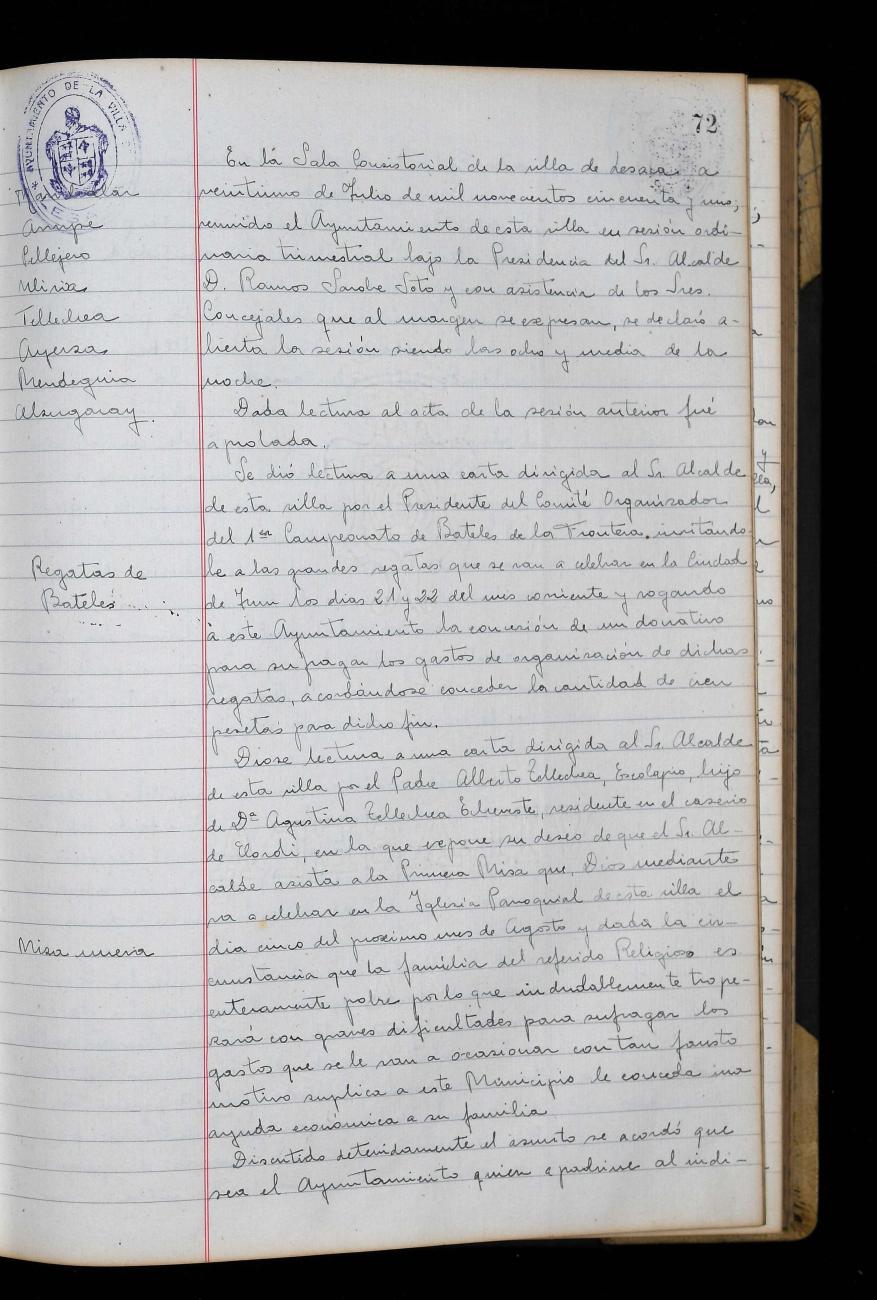 72
AYUNTAMIENTO DE LA VILLA
En la Sala Consistorial de la villa de Lesaca a
veintiuno de Julio de mil novecientos cincuenta y uno,
reunido el Ayuntamiento de esta villa en sesión ordi-
naria trimestral bajo la Presidencia del Sr. Alcalde
D. Ramos Sarobe Soto y con asistencia de los Sres.
Concejales que al margen se expresan, se declaró a-
bierta la sesión siendo las ocho y media de la
noche.
Pellejero
Tellechea
Ayerza
Mendeguia
Alzugaray
Dada lectura al acta de la sesión anterior fué
aprobada.
Se dió lectura a una carta dirigida al Sr. Alcalde
de esta villa por el Presidente del Comité Organizador
del 1er Campeonato de Bateles de la Frontera, invitando-
le a las grandes regatas que se van a celebrar en la Ciudad
de Irun los dias 21 y 22 del mes corriente y rogando
à este Ayuntamiento la concesión de un donativo
para sufragar los gastos de organización de dichas
regatas, acordándose conceder la cantidad de cien
pesetas para dicho fin.
Regatas de
Bateles
Diose lectura a una carta dirigida al Sr. Alcalde
de esta villa por el Padre Alberto Tellechea, Escolapio, hijo
de Dª Agustina Tellechea Echeveste, residente en el caserio
de Elordi, en la que expone su deseo de que el Sr. Al-
calde asista a la Primera Misa que, Dios mediante
va a celebrar en la Iglesia Parroquial de esta villa el
dia cinco del proximo mes de Agosto y dada la cir-
cunstancia que la familia del referido Religioso es
enteramente pobre por lo que indudablemente trope-
zará con graves dificultades para sufragar los
gastos que se le van a ocasionar con tan fausto
motivo suplica a este Municipio le conceda una
ayuda económica a su familia
Misa nueva
Discutido detenidamente el asunto se acordó que
sea el Ayuntamiento quien apadrine al indi-